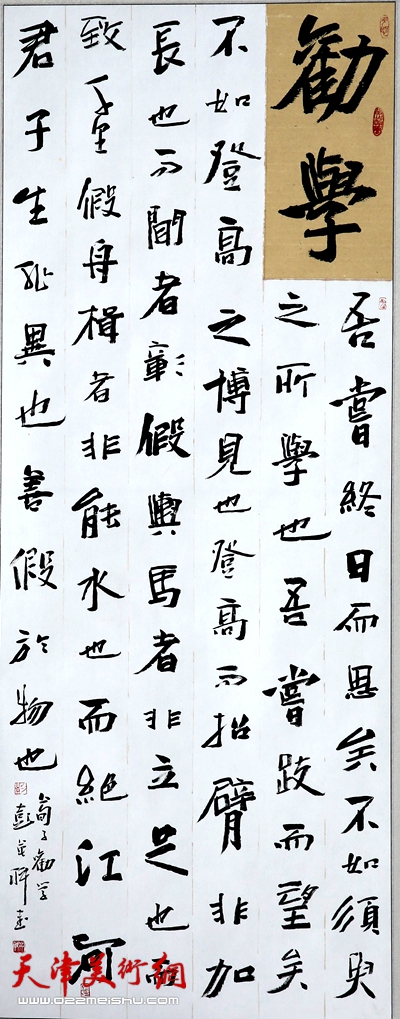 勸學
吾嘗終日而思矣不如須臾
之所學也吾嘗跂而望矣
不如登高之博見也登高而招臂非加
長也而間者彰假輿馬者非立足也而
致千里假舟楫者非能水也而絕江河
君子生非異也善假於物也
荀子勸学
彭英
天津美術網
www.022meishu.com